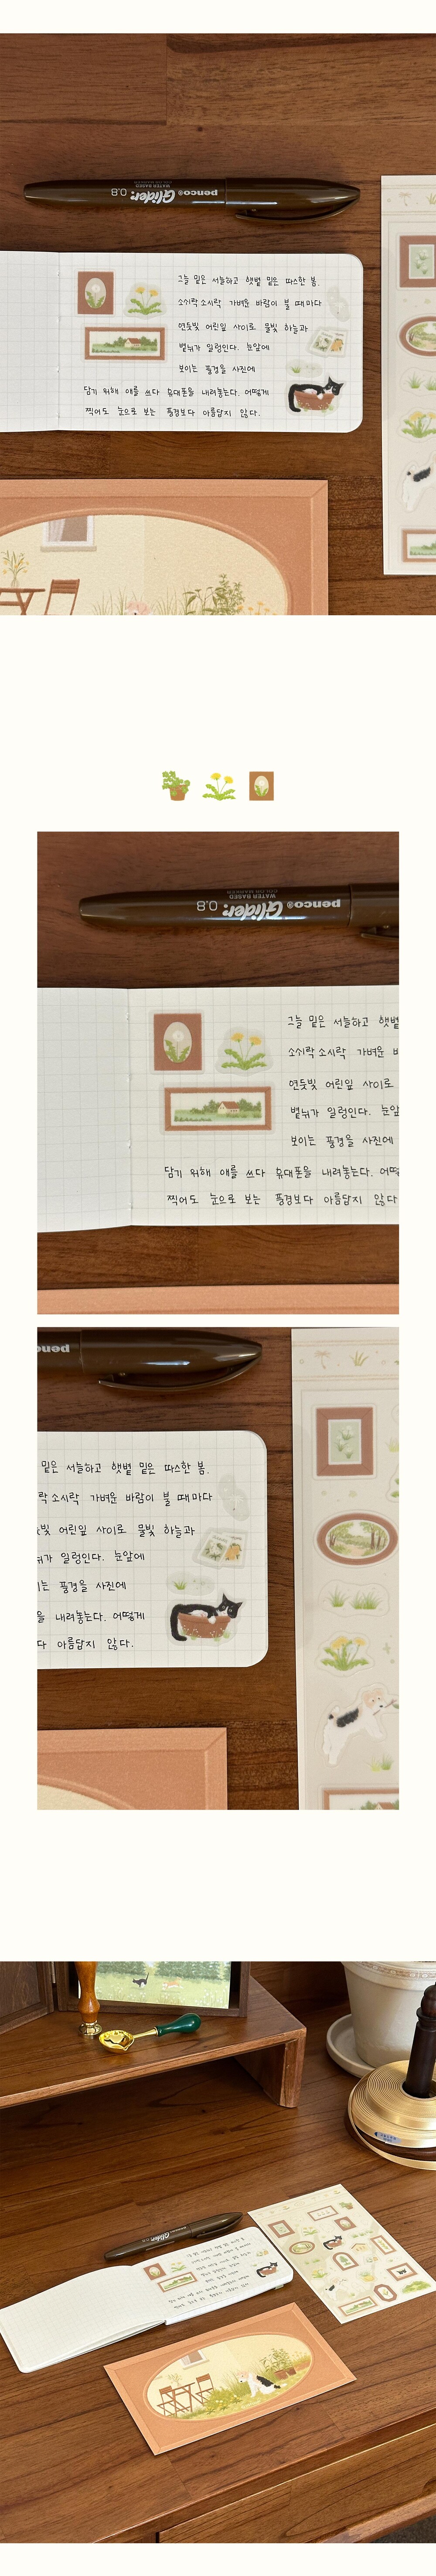 penco® Glider. 0.8
WATER BASED
그늘 밑은 서늘하고 햇볕 밑은 따스한 봄.
소쉬락 소시락 가벼운 바람이 불 때마다
연둣빛 어린잎 사이로 물빛 하늘과
볕뉘가 일렁인다. 눈앞에
보이는 풍경을 사진에
담기 위해 애를 쓰다 휴대폰을 내려놓는다. 어떻게
찍어도 눈으로 보는 풍경보다 아름답지 않다.
penco® Glider. 0.8
WATER BASED
그늘 밑은 서늘하고 햇볕
소쉬락 소시락 가벼운 바
연둣빛 어린잎 사이로
볕뉘가 일렁인다. 눈앞
보이는 풍경을 사진에
담기 위해 애를 쓰다 휴대폰을 내려놓는다. 어떻
찍어도 눈으로 보는 풍경보다 아름답지 않다
penco
밑은 서늘하고 햇볕 밑은 따스한 봄.
락 소시락 가벼운 바람이 불 때마다
빛 어린잎 사이로 물빛 하늘과
뉘가 일렁인다. 눈앞에
는 풍경을 사진에
을 내려놓는다. 어떻게
다 아름답지 않다.